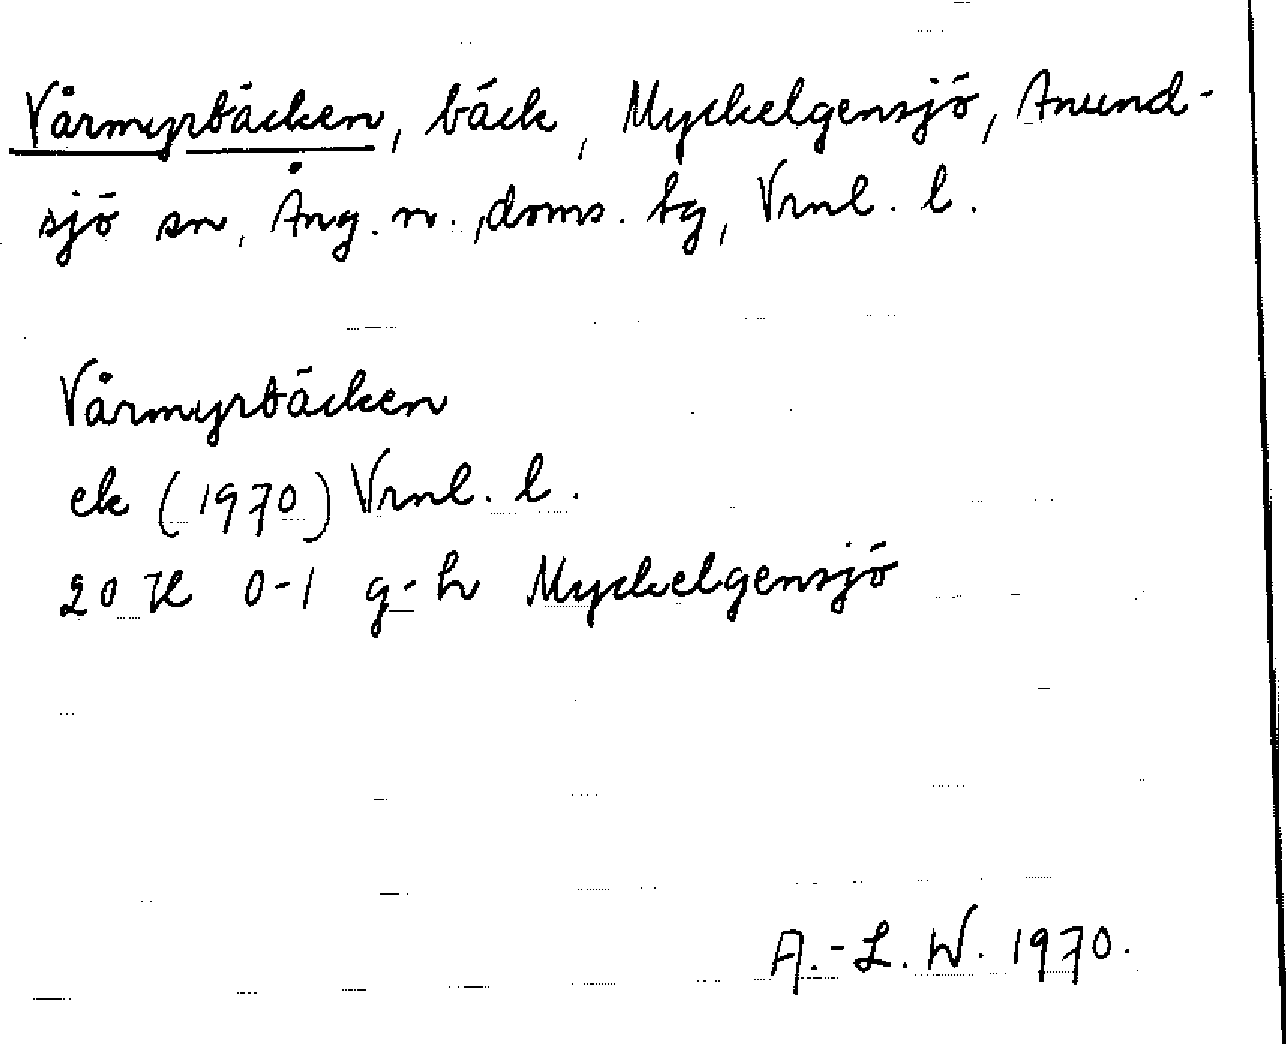 Vårmyrbäcken, bäck, Myckelgensjö, Anund-
sjö sn, Ång. n., doms. bg, Vrnl. l.
Vårmyrbäcken
ek (1970) Vrnl. l.
20 H 0-1 g-h Myckelgensjö
A.-L. W. 1970.